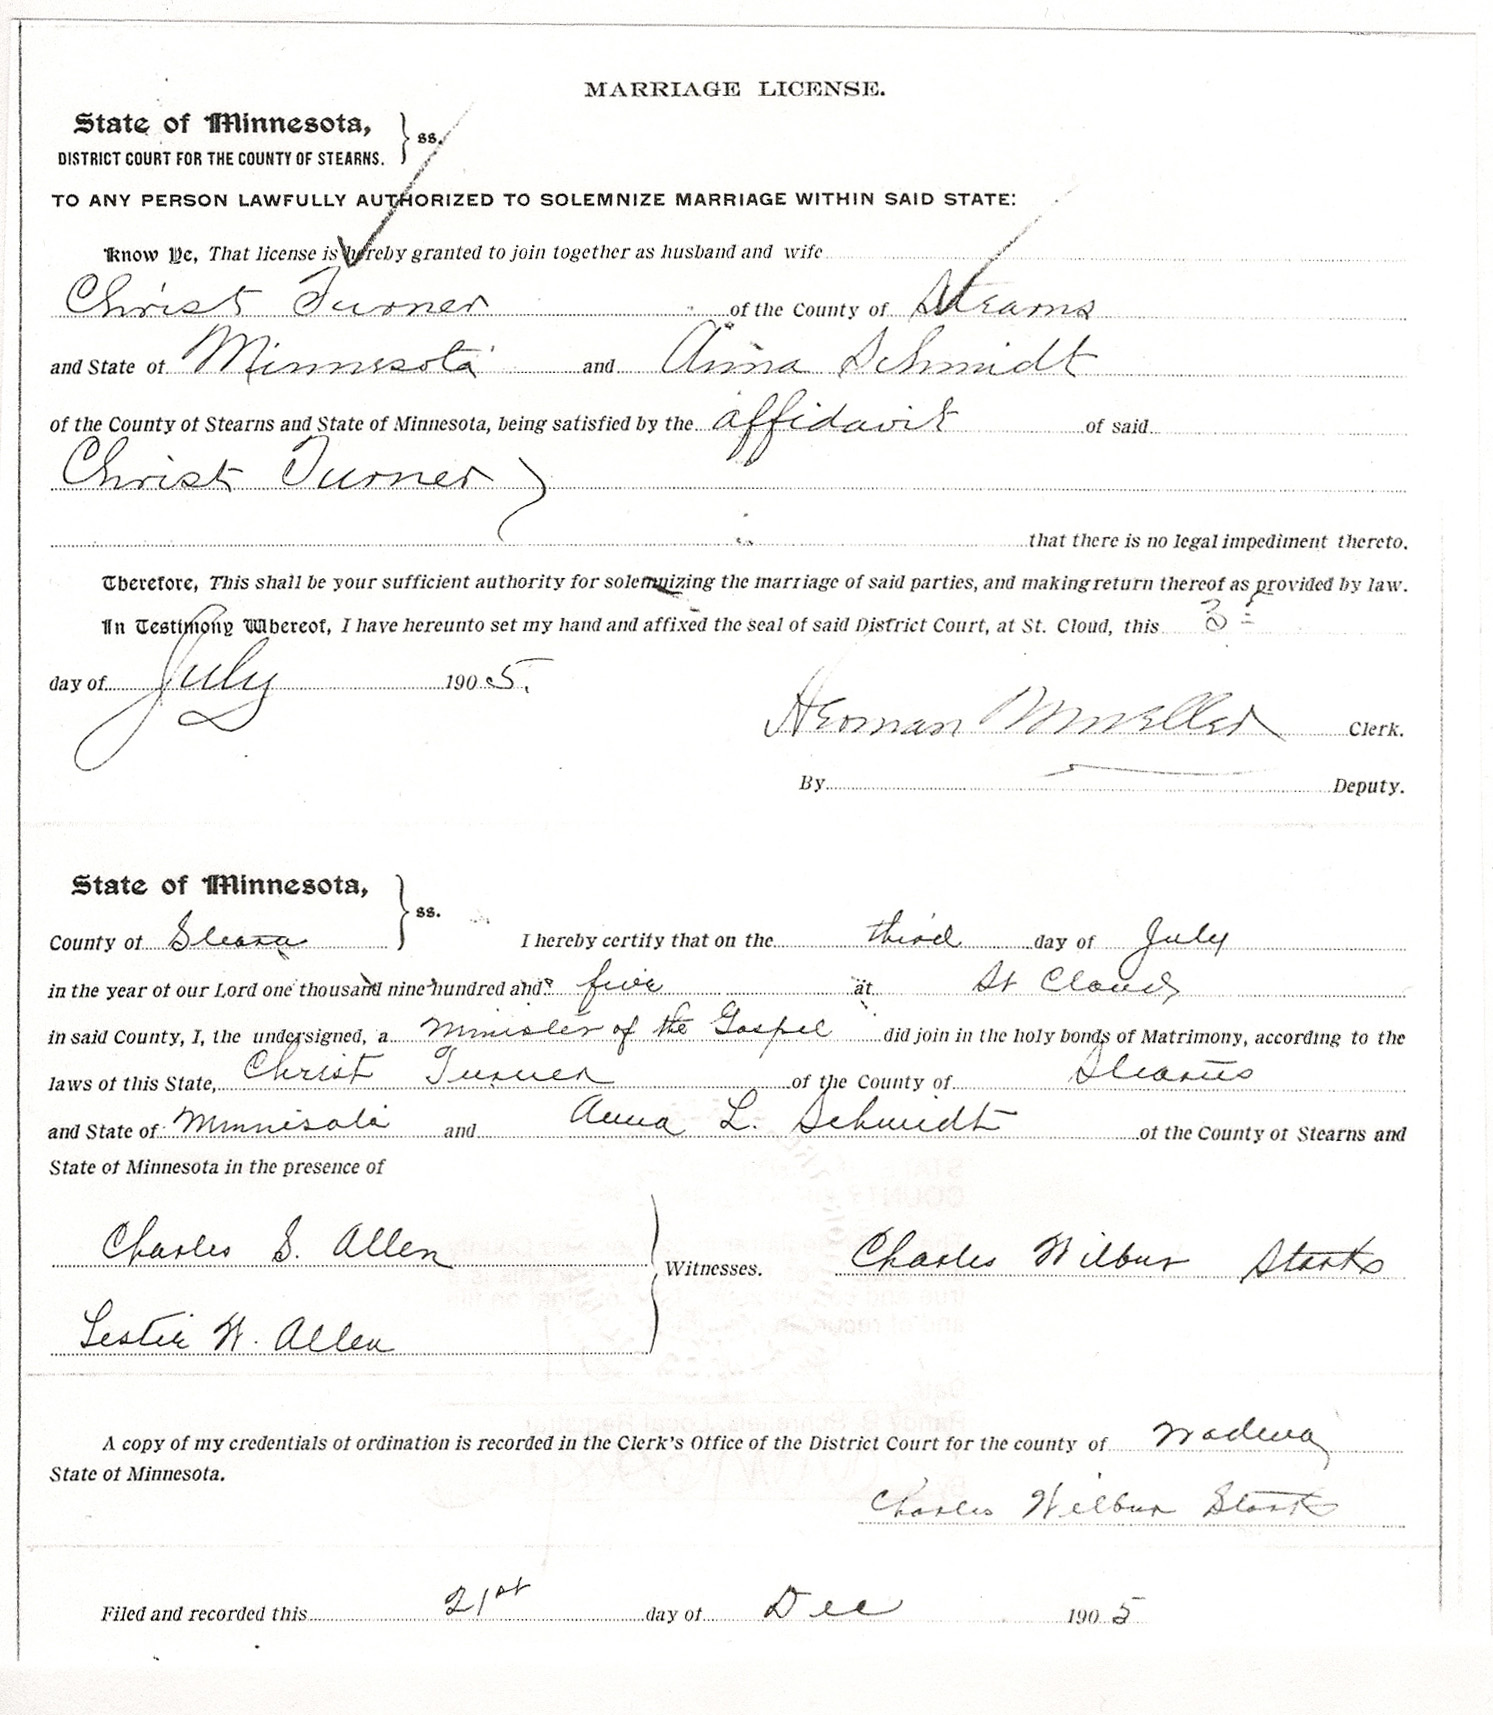 MARRIAGE LICENSE.
State of Minnesota, } ss.
DISTRICT COURT FOR THE COUNTY OF STEARNS.
TO ANY PERSON LAWFULLY AUTHORIZED TO SOLEMNIZE MARRIAGE WITHIN SAID STATE:
Know Ye, That license is hereby granted to join together as husband and wife
Christ Turner of the County of Stearns
and State of Minnesota and Anna Schmidt
of the County of Stearns and State of Minnesota, being satisfied by the affidavit of said
Christ Turner
that there is no legal impediment thereto.
Therefore, This shall be your sufficient authority for solemnizing the marriage of said parties, and making return thereof as provided by law.
In Testimony Whereof, I have hereunto set my hand and affixed the seal of said District Court, at St. Cloud, this 3
day of July 1905.
Herman Mueller Clerk.
By Deputy.
State of Minnesota, } ss.
County of Stearns I hereby certify that on the third day of July
in the year of our Lord one thousand nine hundred and five at St Cloud
in said County, I, the undersigned, a Minister of the Gospel did join in the holy bonds of Matrimony, according to the
laws of this State, Christ Turner of the County of Stearns
and State of Minnisota and Anna L. Schmidt of the County of Stearns and
State of Minnesota in the presence of
Charles S. Allen
Witnesses. Charles Wilbur Starks
Lestie W. Allen
A copy of my credentials of ordination is recorded in the Clerk's Office of the District Court for the county of Wadena
State of Minnesota.
Charles Wilbur Starks
Filed and recorded this 21st day of Dec 1905